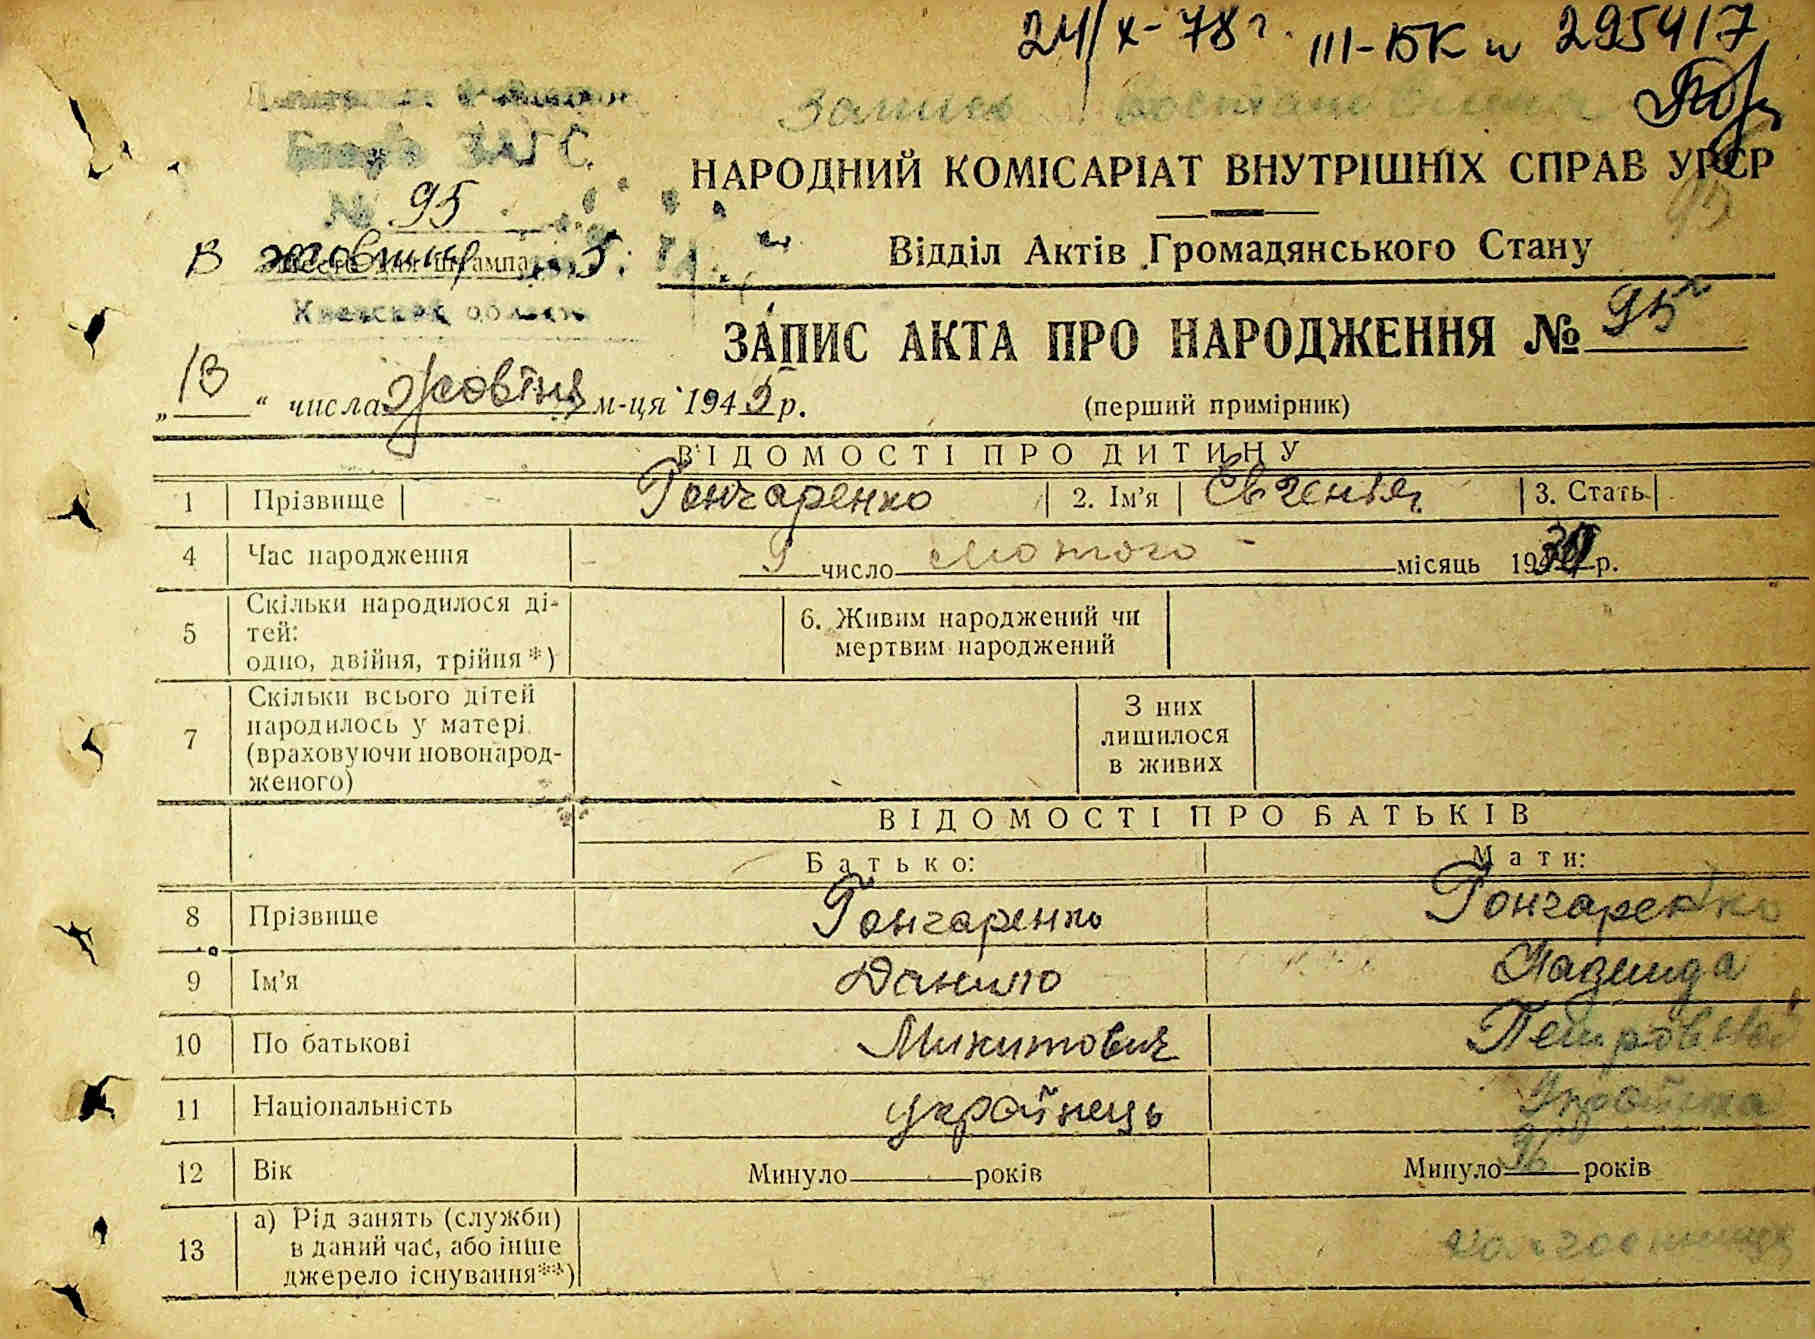 24/X-78 г. III-БК № 295417
Запись восстановлена
Бюро ЗАГС
№ 95
НАРОДНИЙ КОМІСАРІАТ ВНУТРІШНІХ СПРАВ УРСР
95
В жовтня 5.
Место для штампа
Відділ Актів Громадянського Стану
Киевской области
ЗАПИС АКТА ПРО НАРОДЖЕННЯ № 95
„13“ числа Жовтня м-ця 1945 р.
(перший примірник)
ВІДОМОСТІ ПРО ДИТИНУ
1 Прізвище Гончаренко 2. Ім'я Євгенія 3. Стать
4 Час народження 9 число лютого місяць 1930 р.
5 Скільки народилося ді-
тей:
одно, двійня, трійня *)
6. Живим народжений чи
мертвим народжений
7 Скільки всього дітей
народилось у матері
(враховуючи новонарод-
женого)
З них
лишилося
в живих
ВІДОМОСТІ ПРО БАТЬКІВ
Батько: Мати:
8 Прізвище Гончаренко Гончаренко
9 Ім'я Данило Надежда
10 По батькові Микитович Петровна
11 Національність українець Українка
12 Вік Минуло років Минуло 36 років
13 а) Рід занять (служби)
в даний час, або інше
джерело існування**)
колгоспниця